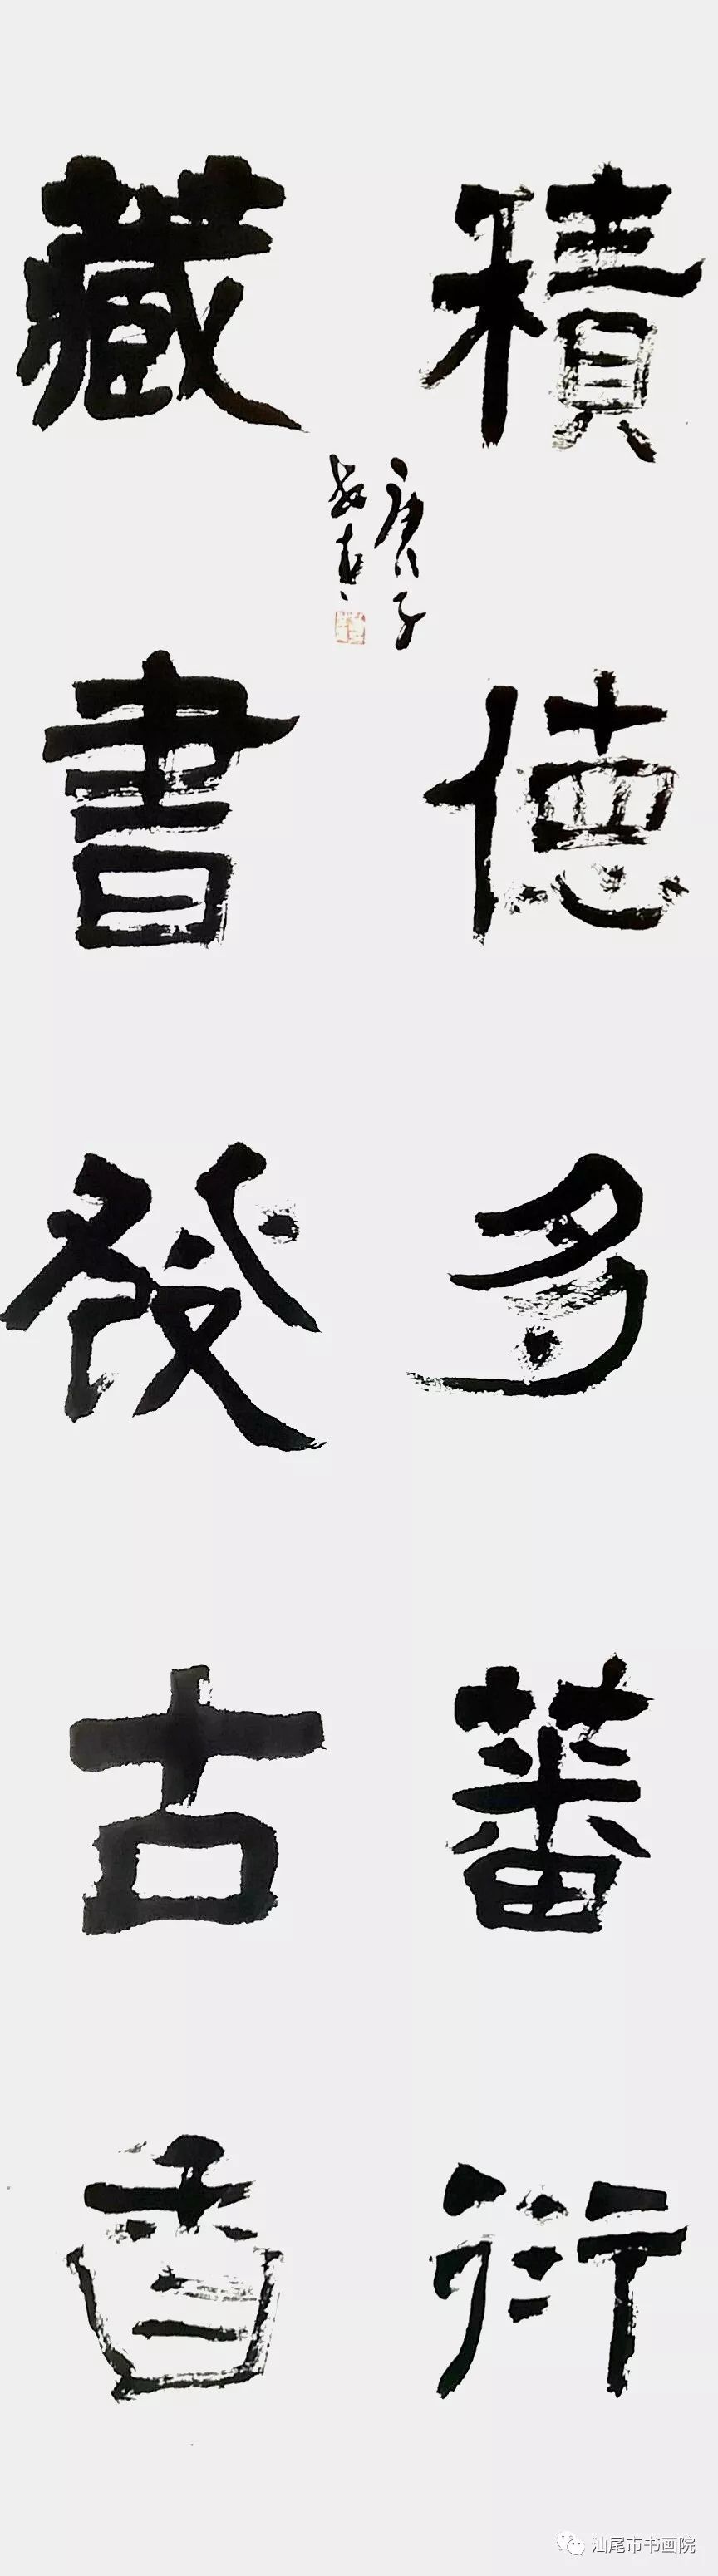 積德多蕃衍
藏書發古香
庚子
汕尾市书画院